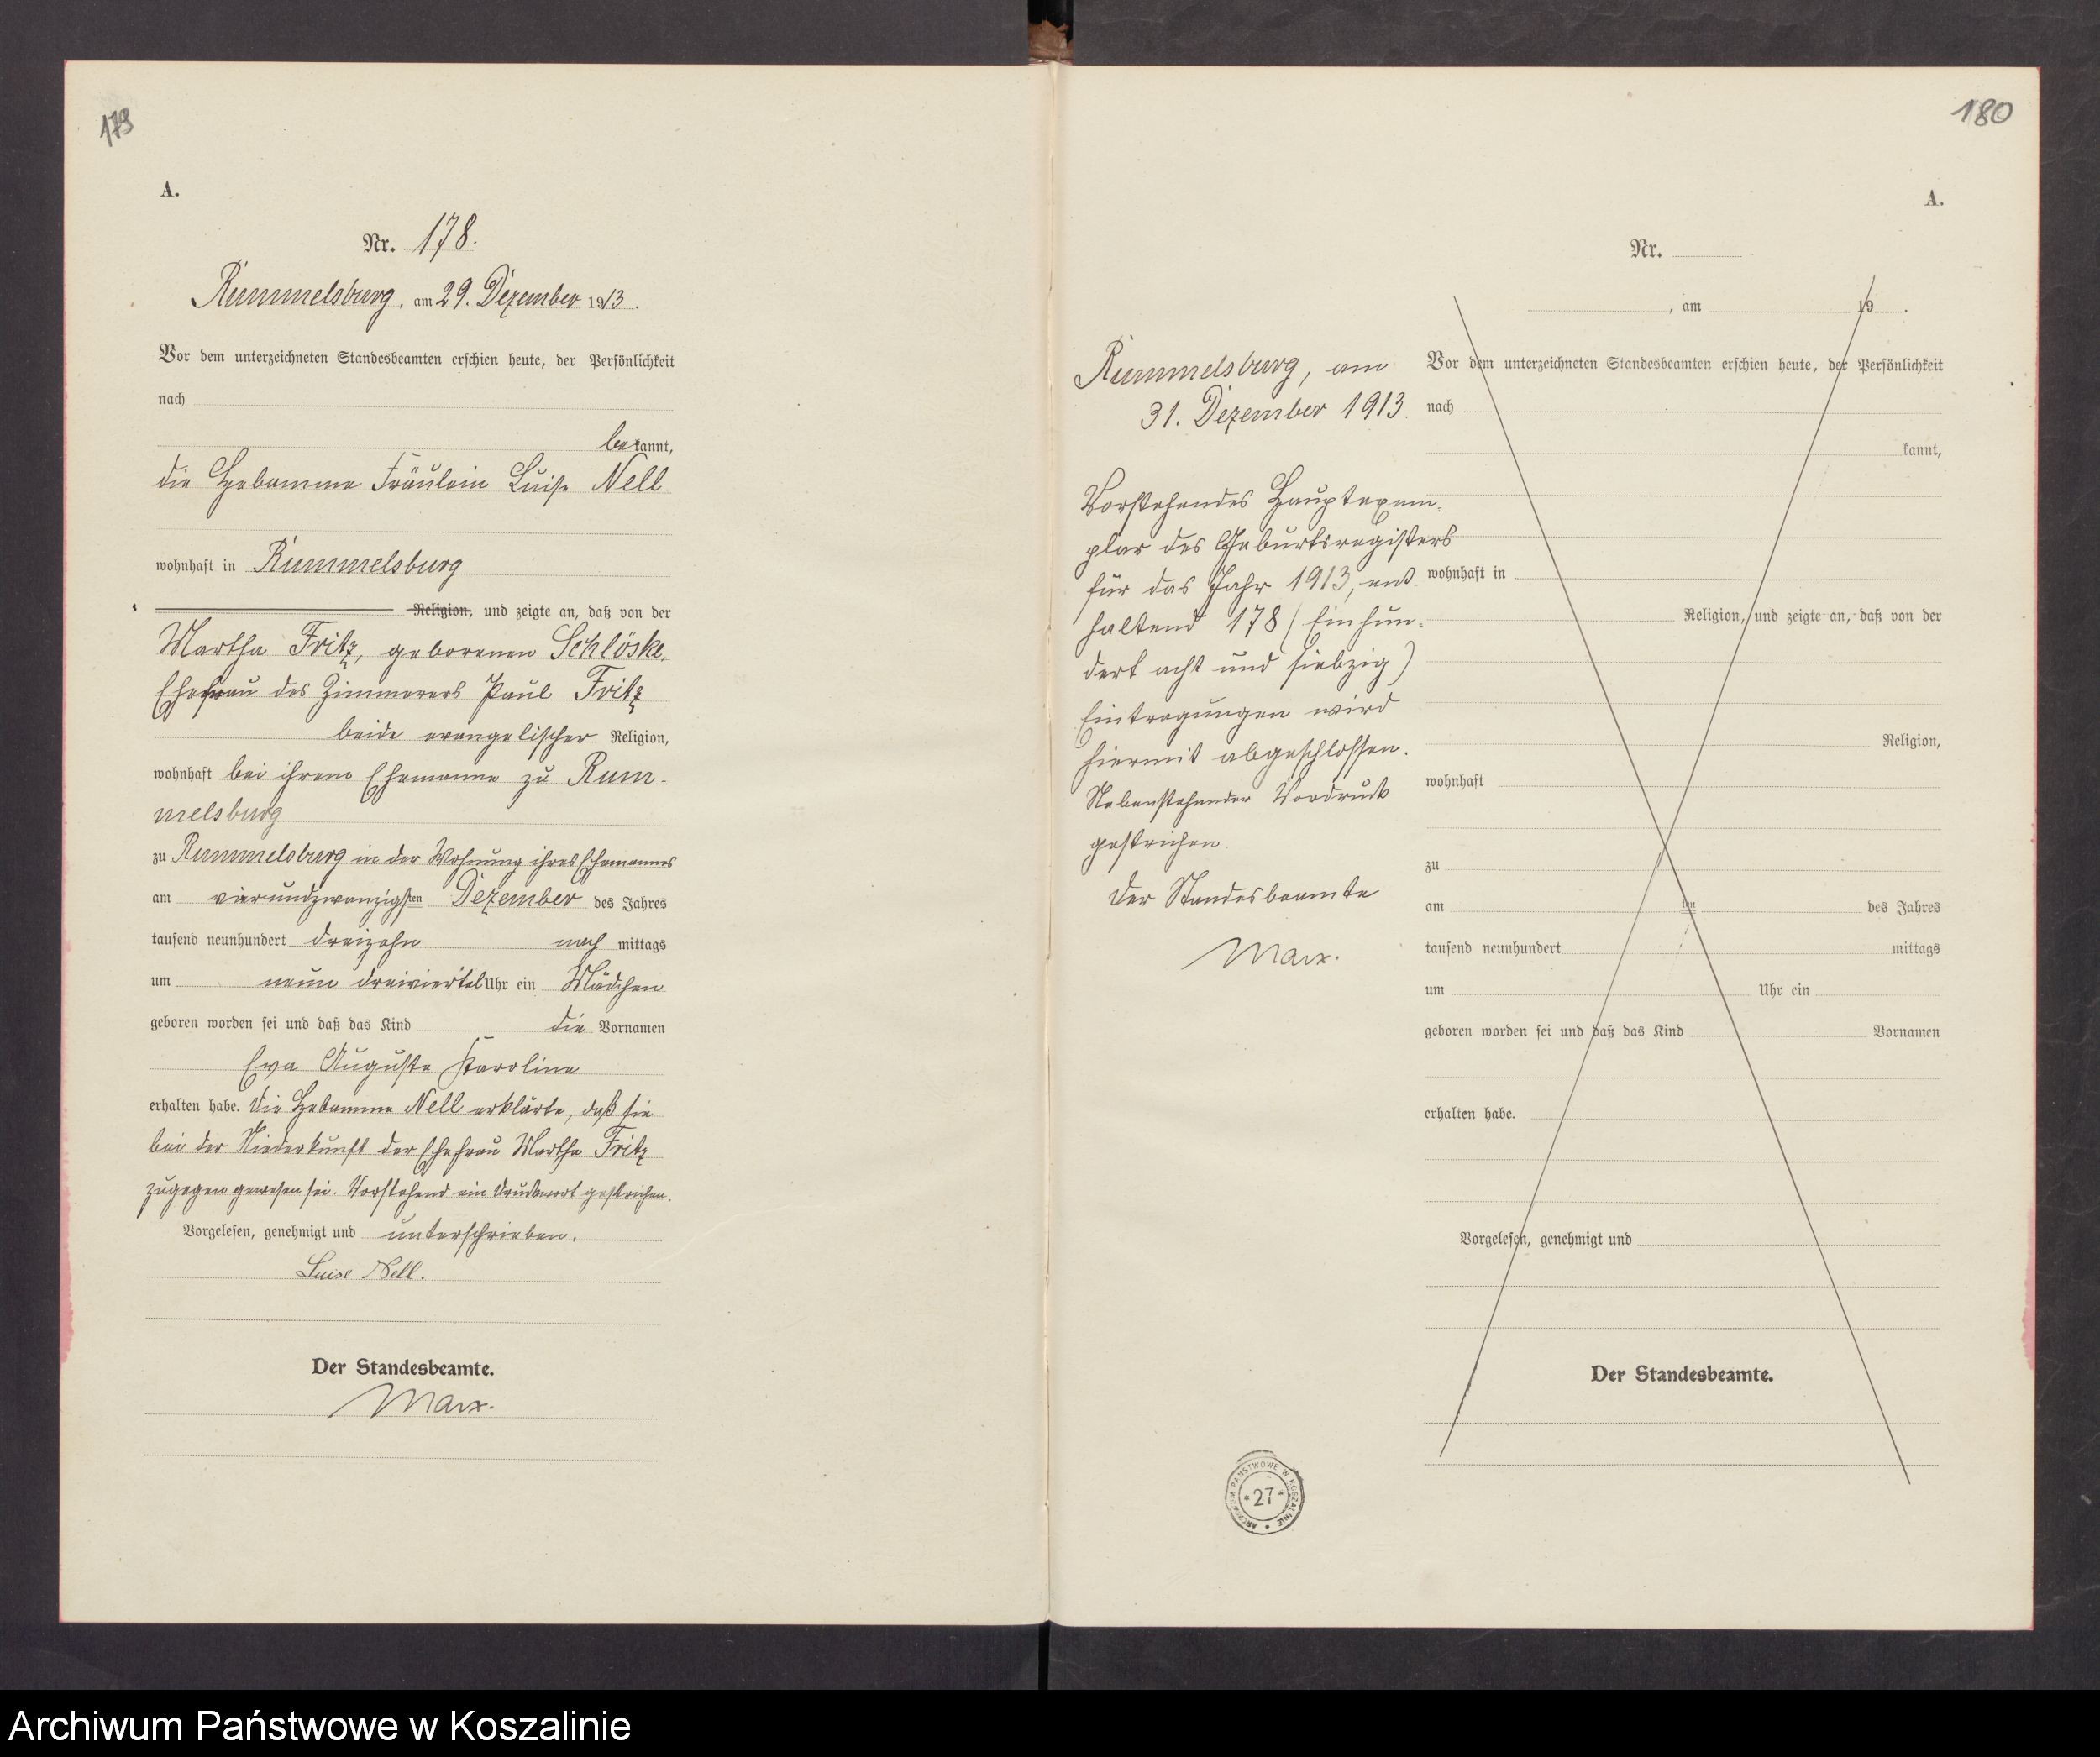 179
A.
Nr. 178.
Rummelsburg, am 29. Dezember 1913.
Vor dem unterzeichneten Standesbeamten erschien heute, der Persönlichkeit
nach
bekannt,
die Hebamme Fräulein Luise Nell
wohnhaft in Rummelsburg
Religion, und zeigte an, daß von der
Martha Fritz, geborenen Schlöske,
Ehefrau des Zimmerers Paul Fritz
beide evangelischer Religion,
wohnhaft bei ihrem Ehemanne zu Rum-
melsburg
zu Rummelsburg in der Wohnung ihres Ehemannes
am vierundzwanzigsten Dezember des Jahres
tausend neunhundert dreizehn nach mittags
um neun dreiviertel Uhr ein Mädchen
geboren worden sei und daß das Kind die Vornamen
Eva Auguste Karoline
erhalten habe. Die Hebamme Nell erklärte, daß sie
bei der Niederkunft der Ehefrau Martha Fritz
zugegen gewesen sei. Vorstehend ein Druckwort gestrichen.
Vorgelesen, genehmigt und unterschrieben.
Luise Nell.
Der Standesbeamte.
Marx.
180
A.
Nr.
, am 19 .
Rummelsburg, am
31. Dezember 1913.
Vorstehendes Hauptexem-
plar des Geburtsregisters
für das Jahr 1913, ent-
haltend 178 (Einhun-
dert acht und siebzig)
Eintragungen wird
hiermit abgeschlossen.
Nebenstehender Vordruck
gestrichen.
Der Standesbeamte
Marx.
Vor dem unterzeichneten Standesbeamten erschien heute, der Persönlichkeit
nach
kannt,
wohnhaft in
Religion, und zeigte an, daß von der
Religion,
wohnhaft
zu
am ten des Jahres
tausend neunhundert mittags
um Uhr ein
geboren worden sei und daß das Kind Vornamen
erhalten habe.
Vorgelesen, genehmigt und
Der Standesbeamte.
ARCHIWUM PAŃSTWOWE W KOSZALINIE
* 27 *
Archiwum Państwowe w Koszalinie